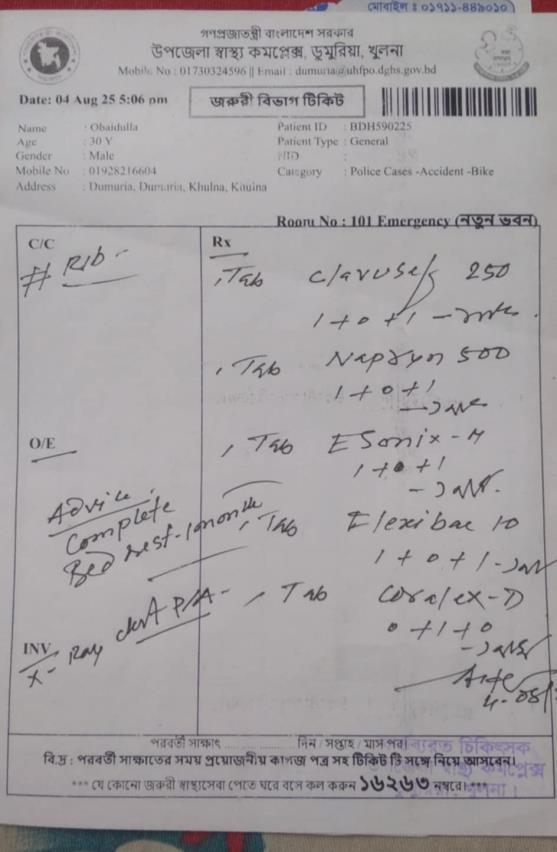 মোবাইল : ০১৭১১-৪৪৯০১০
গণপ্রজাতন্ত্রী বাংলাদেশ সরকার
উপজেলা স্বাস্থ্য কমপ্লেক্স, ডুমুরিয়া, খুলনা
Mobile No : 01730324596 || Email : dumuria@uhfpo.dghs.gov.bd
Date: 04 Aug 25 5:06 pm
জরুরী বিভাগ টিকিট
Name : Obaidulla
Patient ID : BDH590225
Age : 30 Y
Patient Type : General
Gender : Male
NID :
Mobile No : 01928216604
Category : Police Cases -Accident -Bike
Address : Dumuria, Dumuria, Khulna,
Room No : 101 Emergency (নতুন ভবন)
C/C
Rx
# Rib -
Tab 250
1 + 0 + 1 -
Tab 500
1 + 0 + 1
O/E
Tab ESonix-
1 + 0 + 1
Advice :
Complete
Bed rest - 1 month
Tab Flexibac 10
1 + 0 + 1 -
Tab Coralex-D
0 + 1 + 0
INV
X-Ray chest P/A -
পরবর্তী সাক্ষাৎ .................. দিন / সপ্তাহ / মাস পর।
চিকিৎসক
বি.দ্র : পরবর্তী সাক্ষাতের সময় প্রয়োজনীয় কাগজ পত্র সহ টিকিট টি সঙ্গে নিয়ে আসবেন।
স্বাস্থ্য কমপ্লেক্স
*** যে কোনো জরুরী স্বাস্থ্যসেবা পেতে ঘরে বসে কল করুন ১৬২৬৩ নম্বরে। ***
খুলনা।